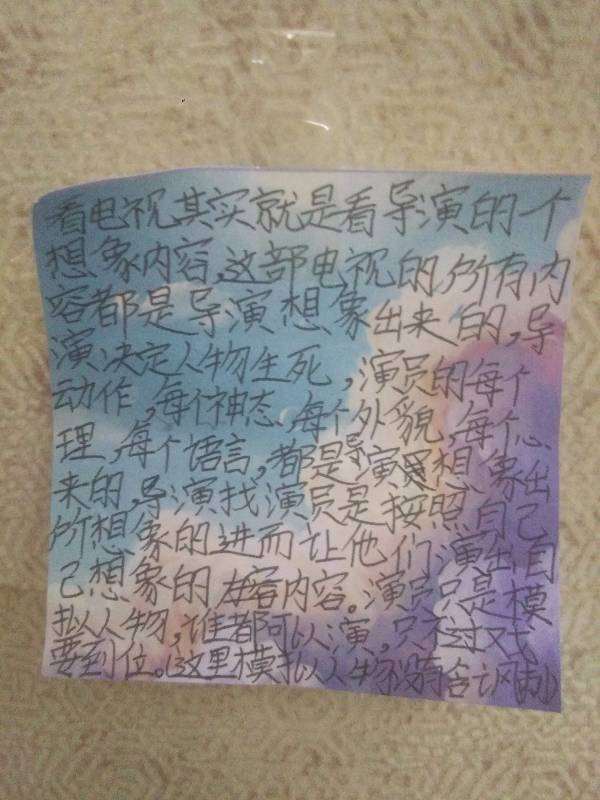 看电视其实就是看导演的个
想象内容,这部电视的所有内
容都是导演想象出来的,导
演决定人物生死,演员的每个
动作,每个神态,每个外貌,每个心
理,每个语言,都是导演想象出
来的,导演找演员是按照自己
所想象的进而让他们演出自
己想象的内容。演员只是模
拟人物,谁都可以演,只不过戏
要到位。(这里模拟人物没有含讽刺)